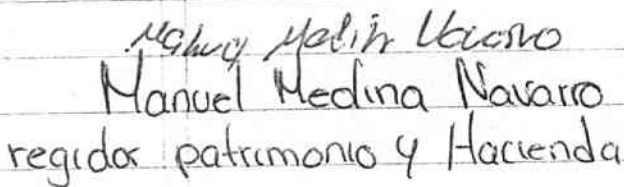 Manuel Medina Navarro
regidor patrimonio y Hacienda